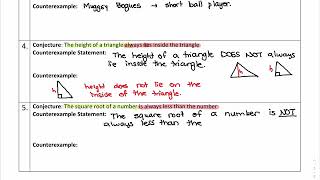 Counterexample: Muggsy Bogues → short ball player.
4.
Conjecture: The height of a triangle always lies inside the triangle
Counterexample Statement: The height of a triangle DOES NOT always
lie inside the triangle.
Counterexample:
h
h
h
height does not lie on the
inside of the triangle.
5.
Conjecture: The square root of a number is always less than the number
Counterexample Statement: The square root of a number is NOT
always less than the
Counterexample: